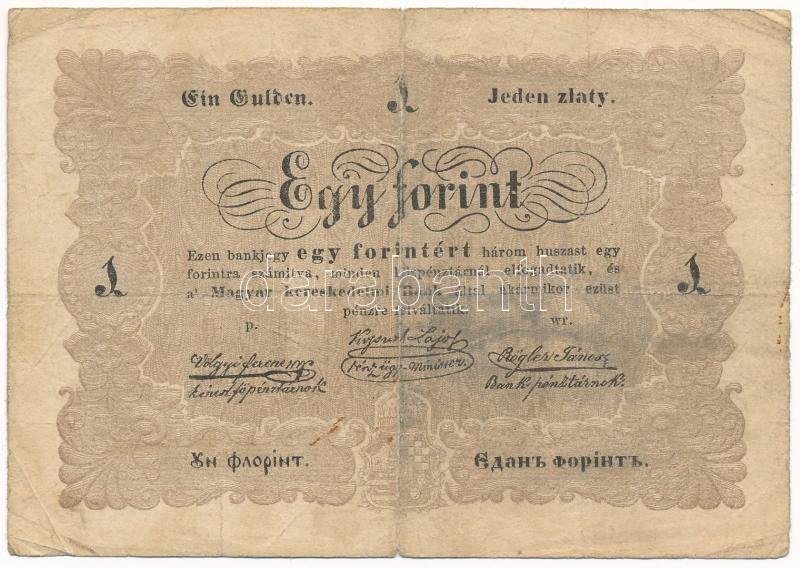 Ein Gulden. 1 Jeden zlaty.
Egy forint
Ezen bankjegy egy forintért három huszast egy
forintra számitva, minden közpénztárnál elfogadtatik, és
1 a' Magyar kereskedelmi Bank által akármikor ezüst 1
pénzre felváltatik
p. wr.
Kossuth Lajos
pénzügy-Minister.
Rögler János
Bank pénztárnok.
Ун флорінт. Єданъ форінтъ.
darabanth